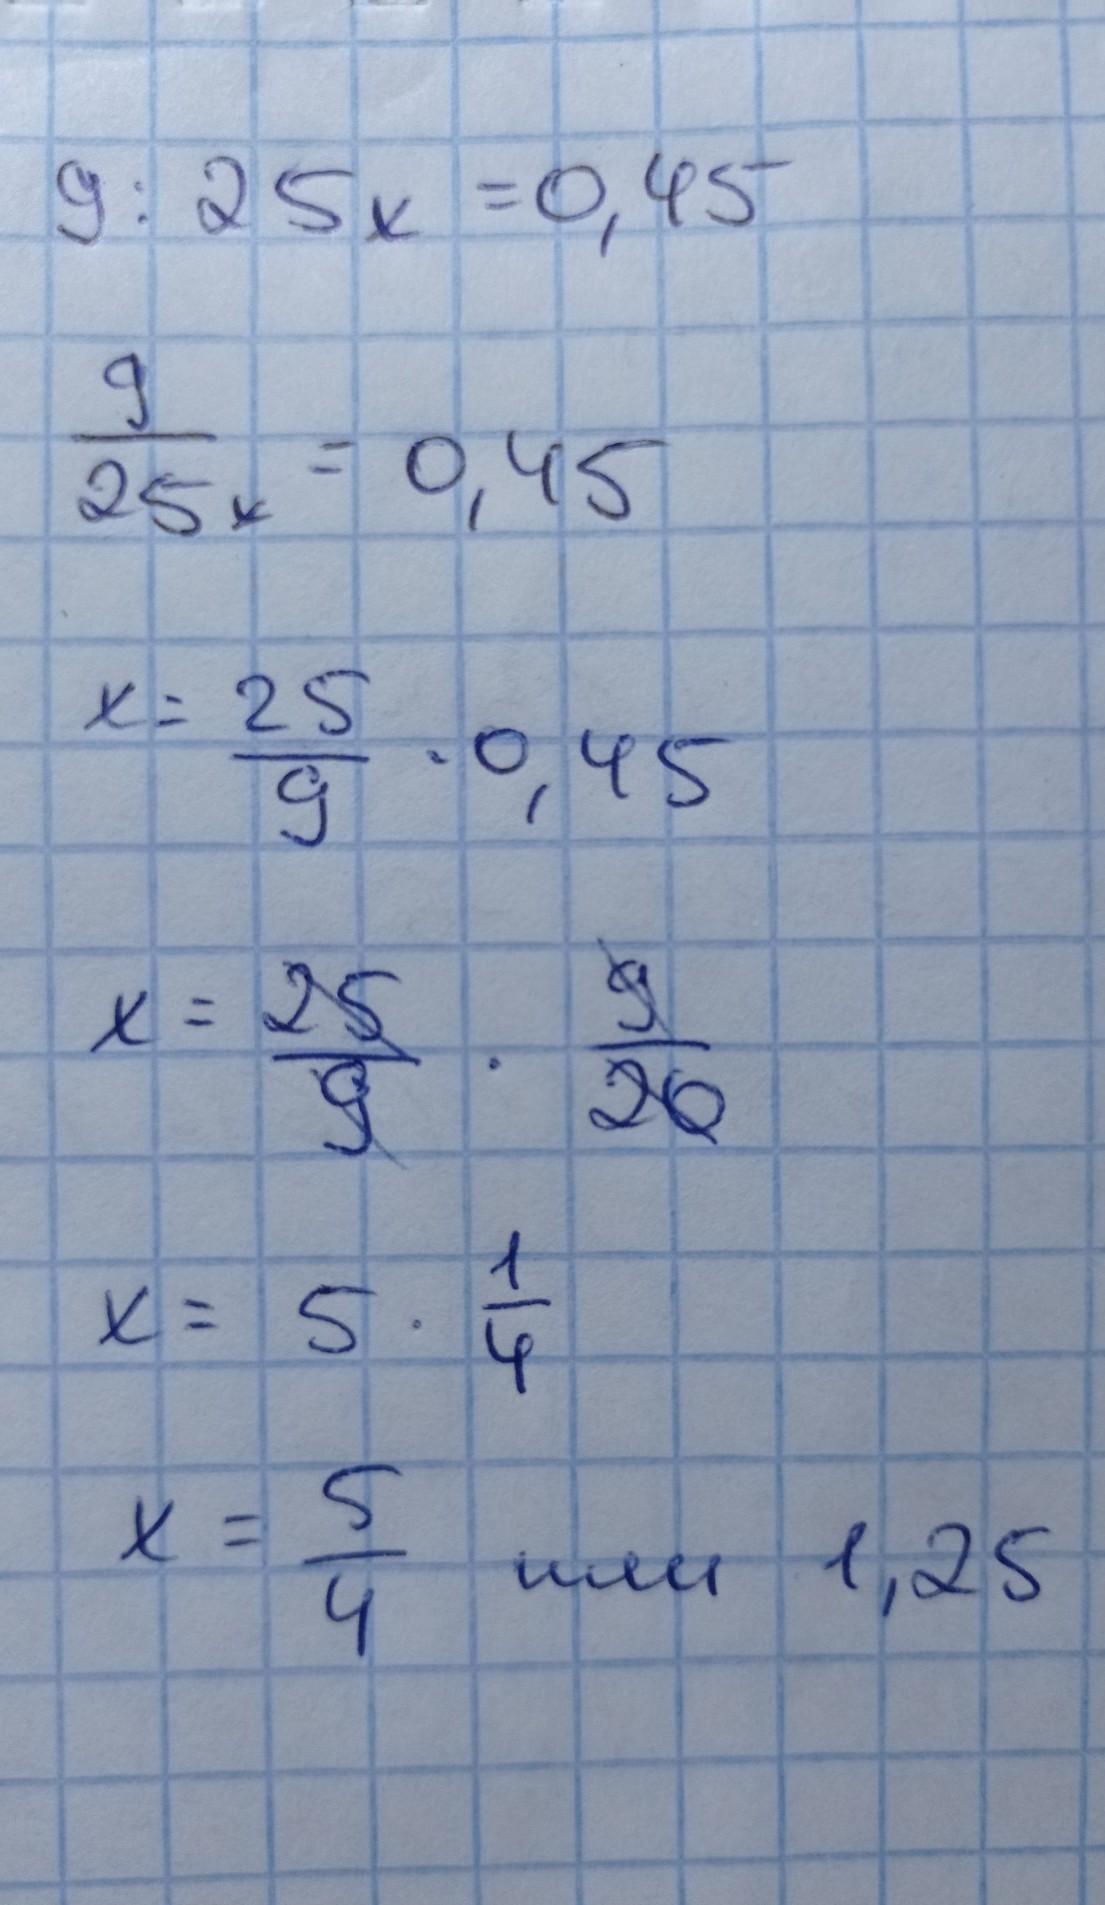 9 : 25x = 0,45
9/25x = 0,45
x = 25/9 · 0,45
x = 25/9 · 9/20
x = 5 · 1/4
x = 5/4 или 1,25